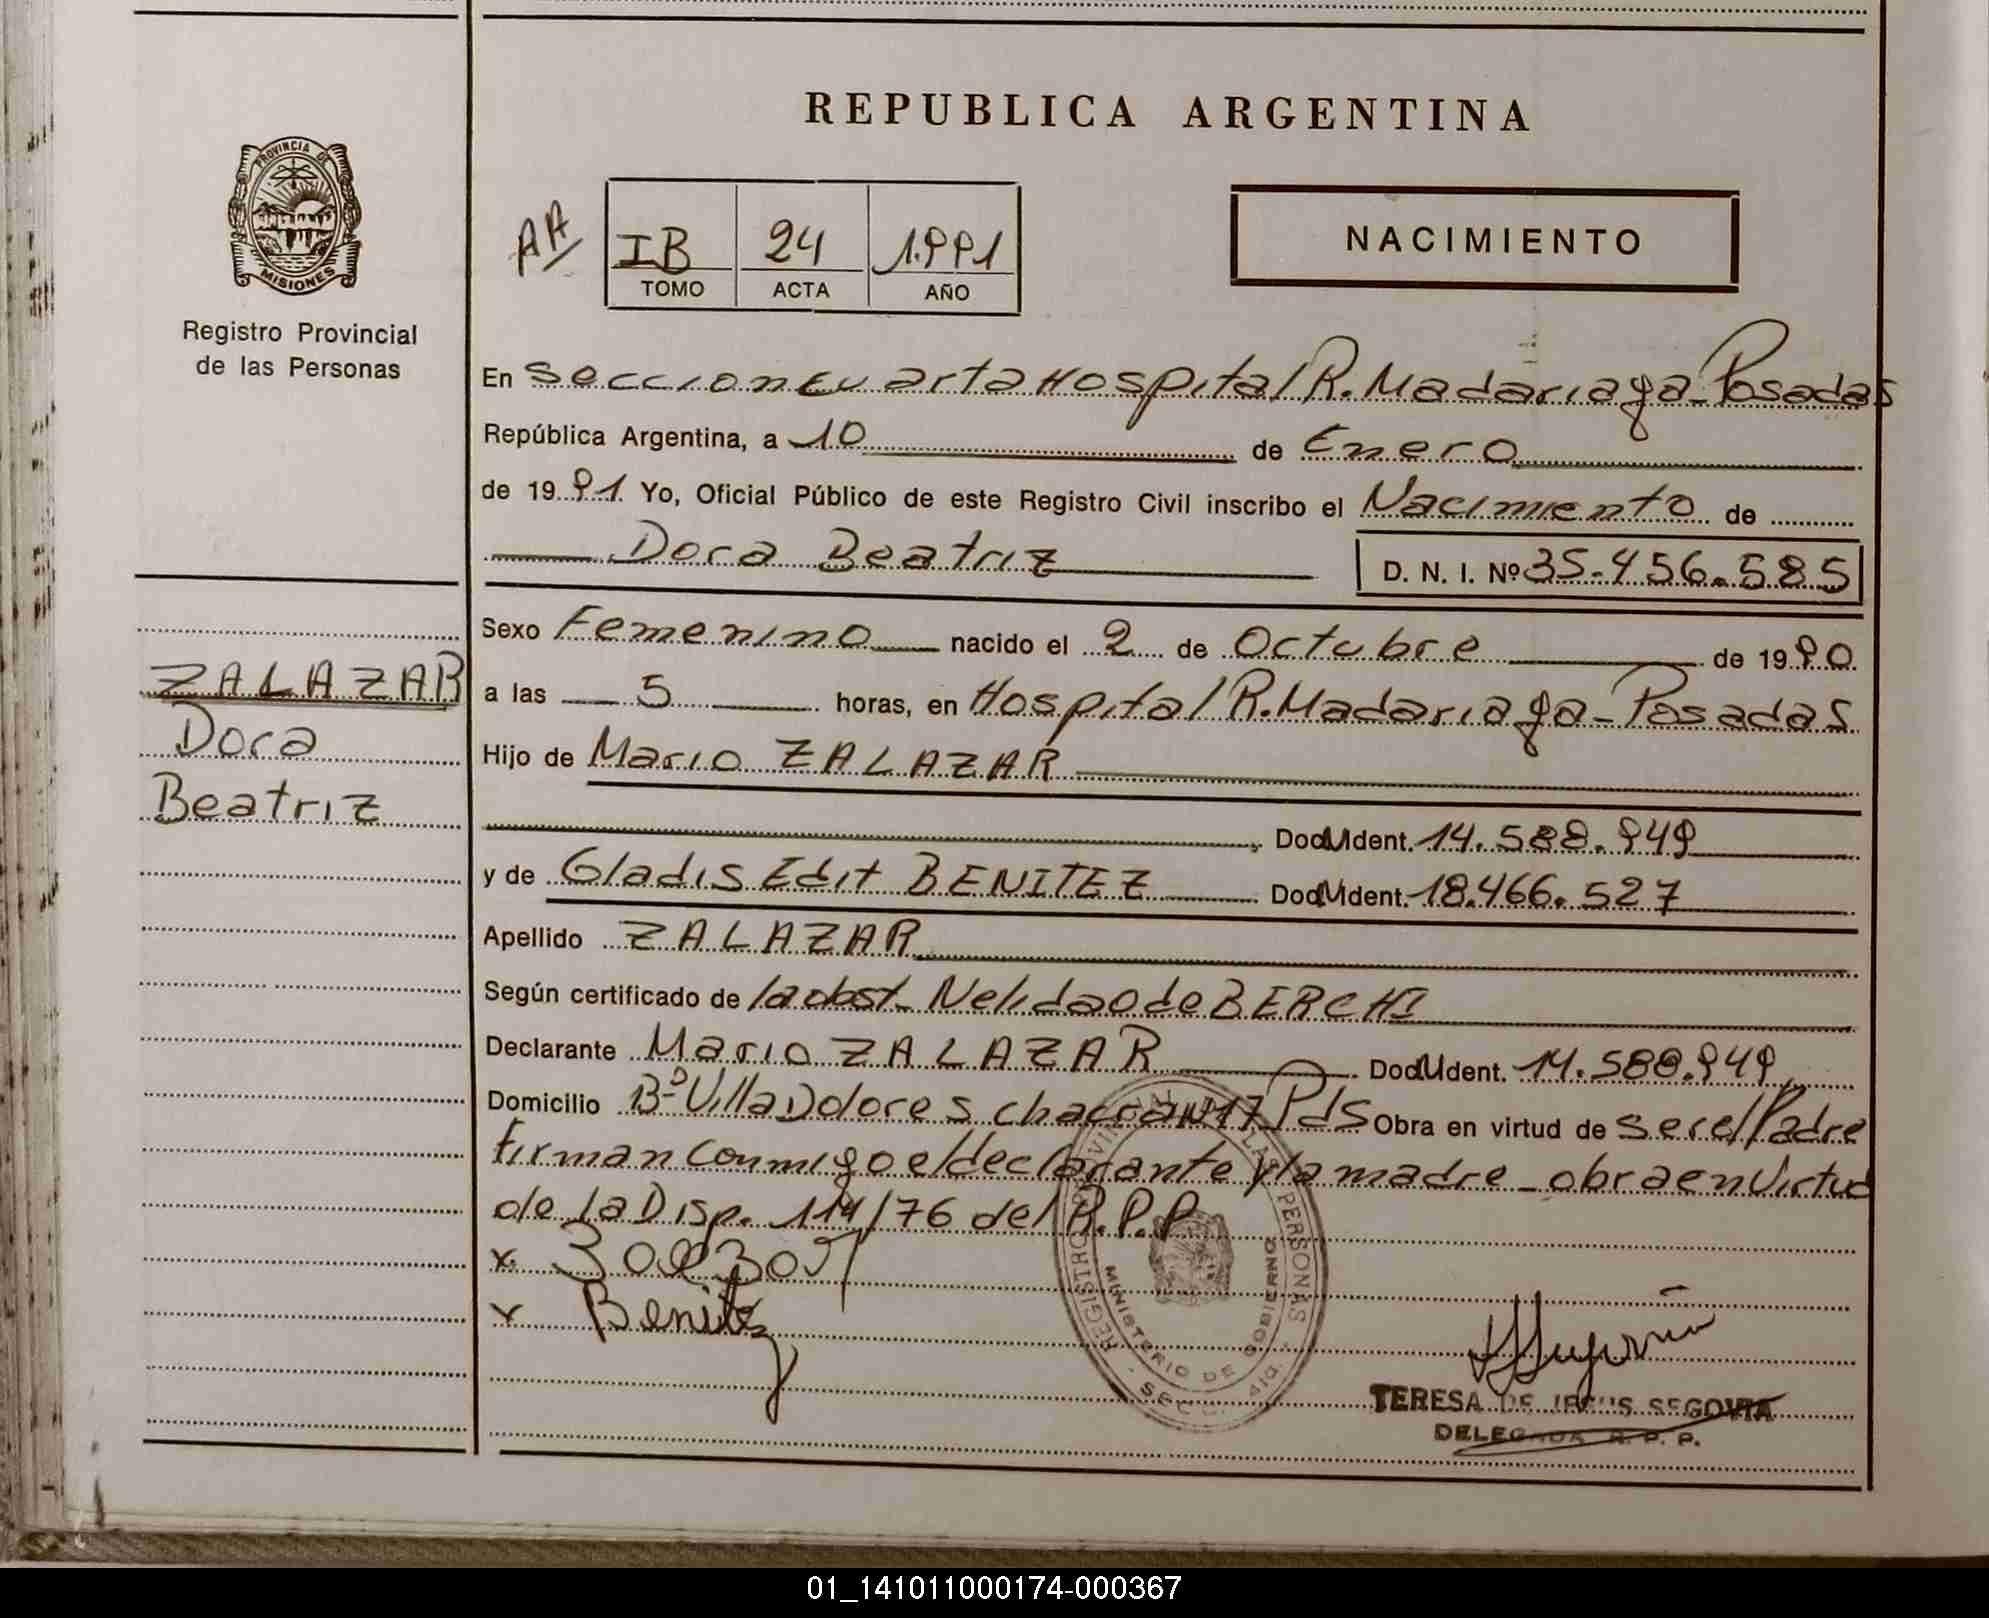 REPUBLICA ARGENTINA
PROVINCIA DE
MISIONES
Registro Provincial
de las Personas
AA
IB 24 1.991
TOMO ACTA AÑO
NACIMIENTO
En Seccion Cuarta Hospital R. Madariaga - Posadas
República Argentina, a 10 de Enero
de 19 91. Yo, Oficial Público de este Registro Civil inscribo el Nacimiento de
Dora Beatriz
D. N. I. Nº 35.456.585
ZALAZAR
Dora
Beatriz
Sexo Femenino nacido el 2 de Octubre de 19 90.
a las 5 horas, en Hospital R. Madariaga - Posadas
Hijo de Mario ZALAZAR
Doc. Ident. 14.588.949
y de Gladis Edit BENITEZ Doc. Ident. 18.466.527
Apellido ZALAZAR
Según certificado de la obst. Nelida O de BERCHI
Declarante Mario ZALAZAR Doc. Ident. 14.588.949
Domicilio Bº Villa Dolores chacra Nº 17 Pds Obra en virtud de ser el Padre
Firman conmigo el declarante y la madre - obra en virtud
de La Disp. 114/76 del R.P.P
x
x Benitez
REGISTRO PROVINCIAL DE LAS PERSONAS
MINISTERIO DE GOBIERNO
SECC. 4ta.
TERESA DE JESUS SEGOVIA
DELEGADA R. P. P.
01_141011000174-000367